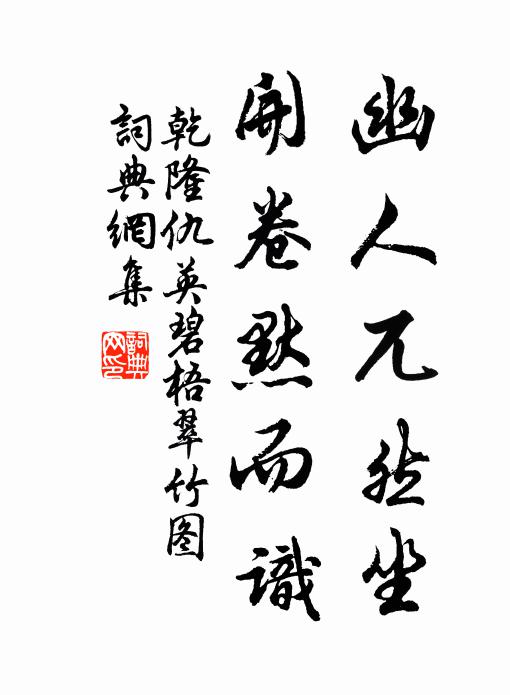 幽人兀然坐
開卷默而識
乾隆仇英碧梧翠竹图
詞典網集
詞典
网印